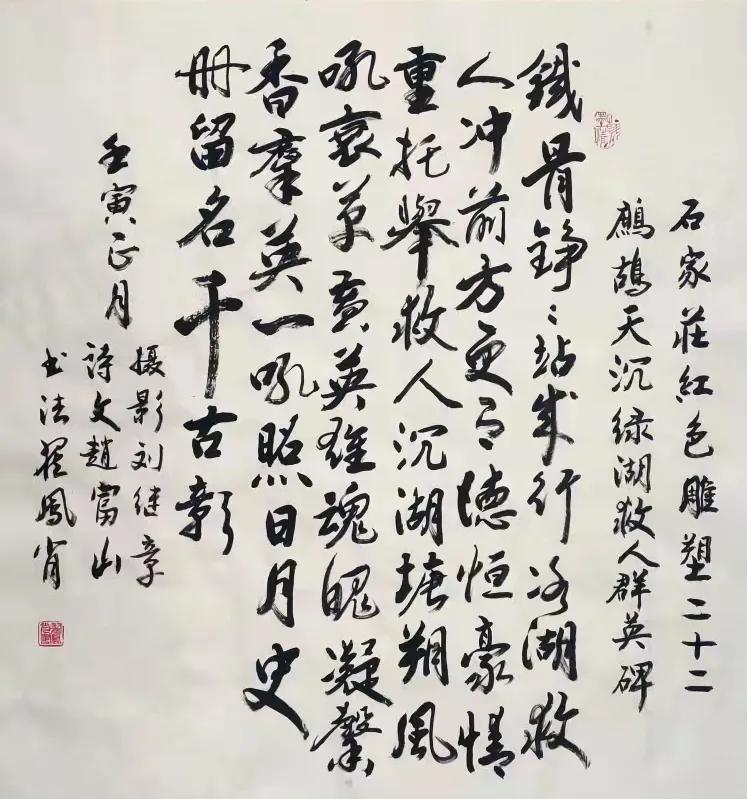 石家莊紅色雕塑二十二
鷓鴣天沉绿湖救人群英碑
鐵骨錚〻站成行冰湖救
人冲前方更有德恒豪情
重托舉救人沉湖塘朔風
吼衰草黄英雄魂魄凝馨
香羣英一吼照日月史
册留名千古彰
壬寅正月
摄影刘继章
詩文趙富山
书法鳳肖